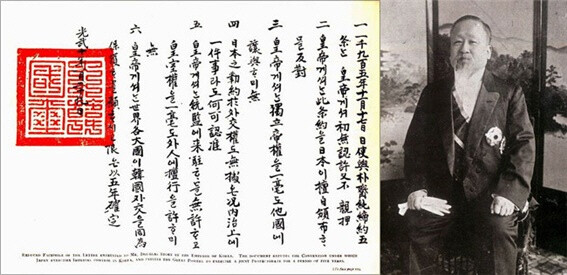 一 一千九百五年十一月十七日 日使與朴齊純締約五
條는 皇帝게셔 初無認許 又不親押
二 皇帝게셔는 此條約을 日本이 擅自頒布ᄒᆞᆷ
을 反對
三 皇帝게셔는 獨立帝權을 一毫도 他國에
讓與ᄒᆞ미 無
四 日本之勒約於外交權도 無據온 況內治上에
一件事라도 何可認准
五 皇帝게셔는 統監에 來駐ᄒᆞᆷ을 無許ᄒᆞ고
皇室權을 一毫도 外人에 擅行을 許ᄒᆞ미
無
六 皇帝게셔는 世界各大國이 韓國外交를 同爲
保護ᄒᆞᆷ을 願ᄒᆞ고 限은 以五年確定
光武十年一月二十九日
REDUCED FACSIMILE OF THE LETTER ENTRUSTED TO MR. DOUGLAS STORY BY THE EMPEROR OF KOREA. THE DOCUMENT REFUSES THE CONVENTION UNDER WHICH
JAPAN IMPERIAL CONTROL IN KOREA, AND INVITES THE GREAT POWERS TO EXERCISE A JOINT PROTECTORATE FOR A PERIOD OF FIVE YEARS.